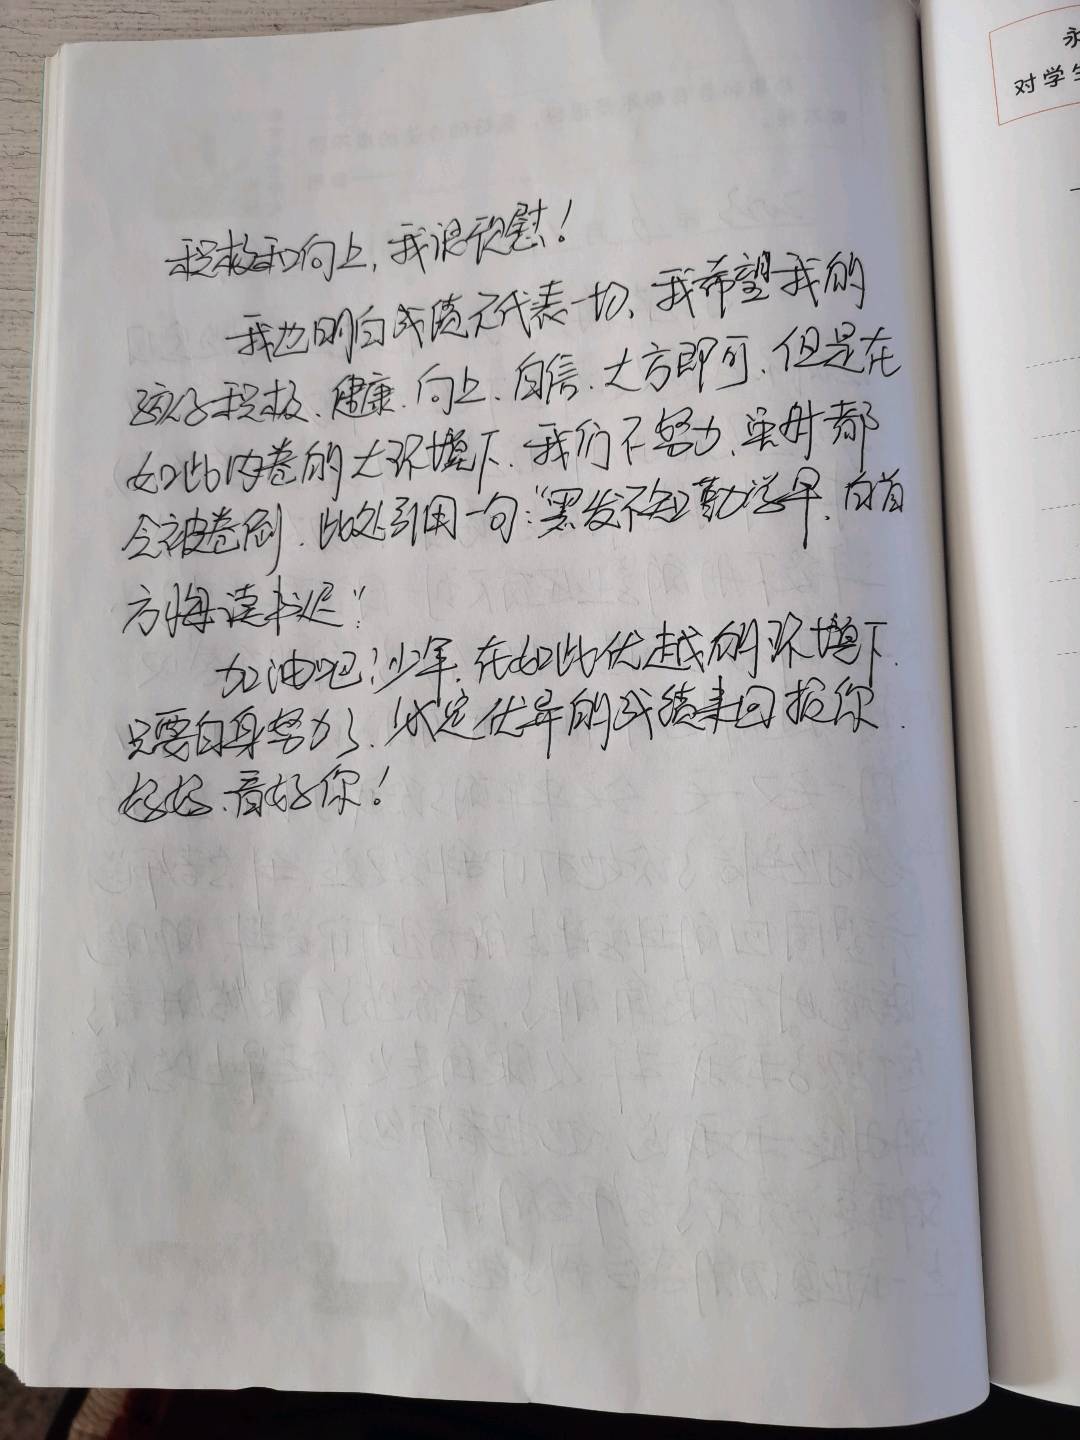 永
对学生
积极和向上,我很欣慰!
我也明白成绩不代表一切、我希望我的
孩子积极、健康、向上、自信、大方即可、但是在
如此内卷的大环境下、我们不努力、虽时都
会被卷倒、此处引用一句:“黑发不知勤学早、白首
方悔读书迟”
加油吧!少年、在如此优越的环境下、
只要自身努力了、必定优异的成绩来回报你、
好好、看好你!